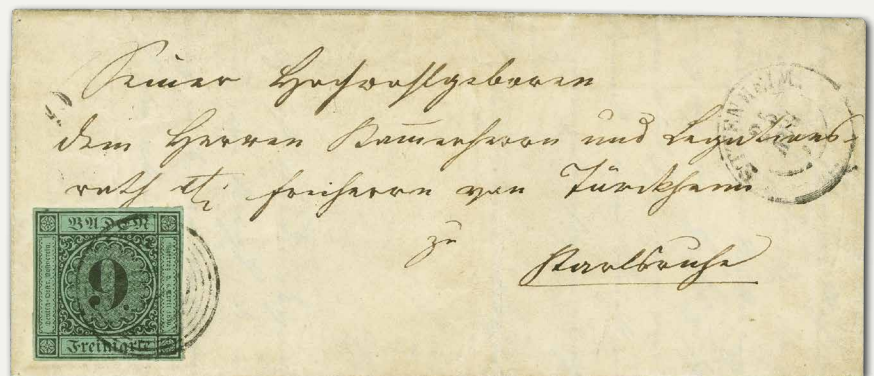 Seiner Hochwohlgeboren
dem Herren Kammerherrn und Legations-
rath Freiherrn von Türckheim
zu
Karlsruhe
ETTENHEIM
BADEN
9
Freimarke